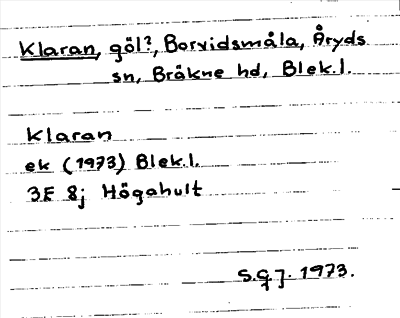 Klaran, göl?, Borvidsmåla, Åryds
sn, Bräkne hd, Blek.l.
Klaran
ek (1973) Blek.l.
3F 8j Högahult
S.G.J. 1973.